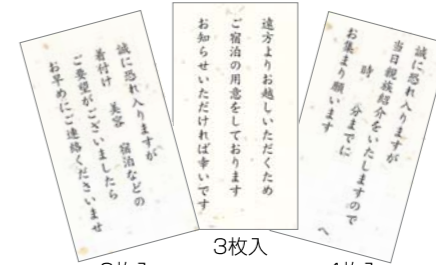 誠に恐れ入りますが
着付け 美容 宿泊などの
ご要望がございましたら
お早めにご連絡くださいませ
遠方よりお越しいただくため
ご宿泊の用意をしております
お知らせいただければ幸いです
3枚入
誠に恐れ入りますが
当日親族紹介をいたしますので
時 分までに
へ
お集まり願います